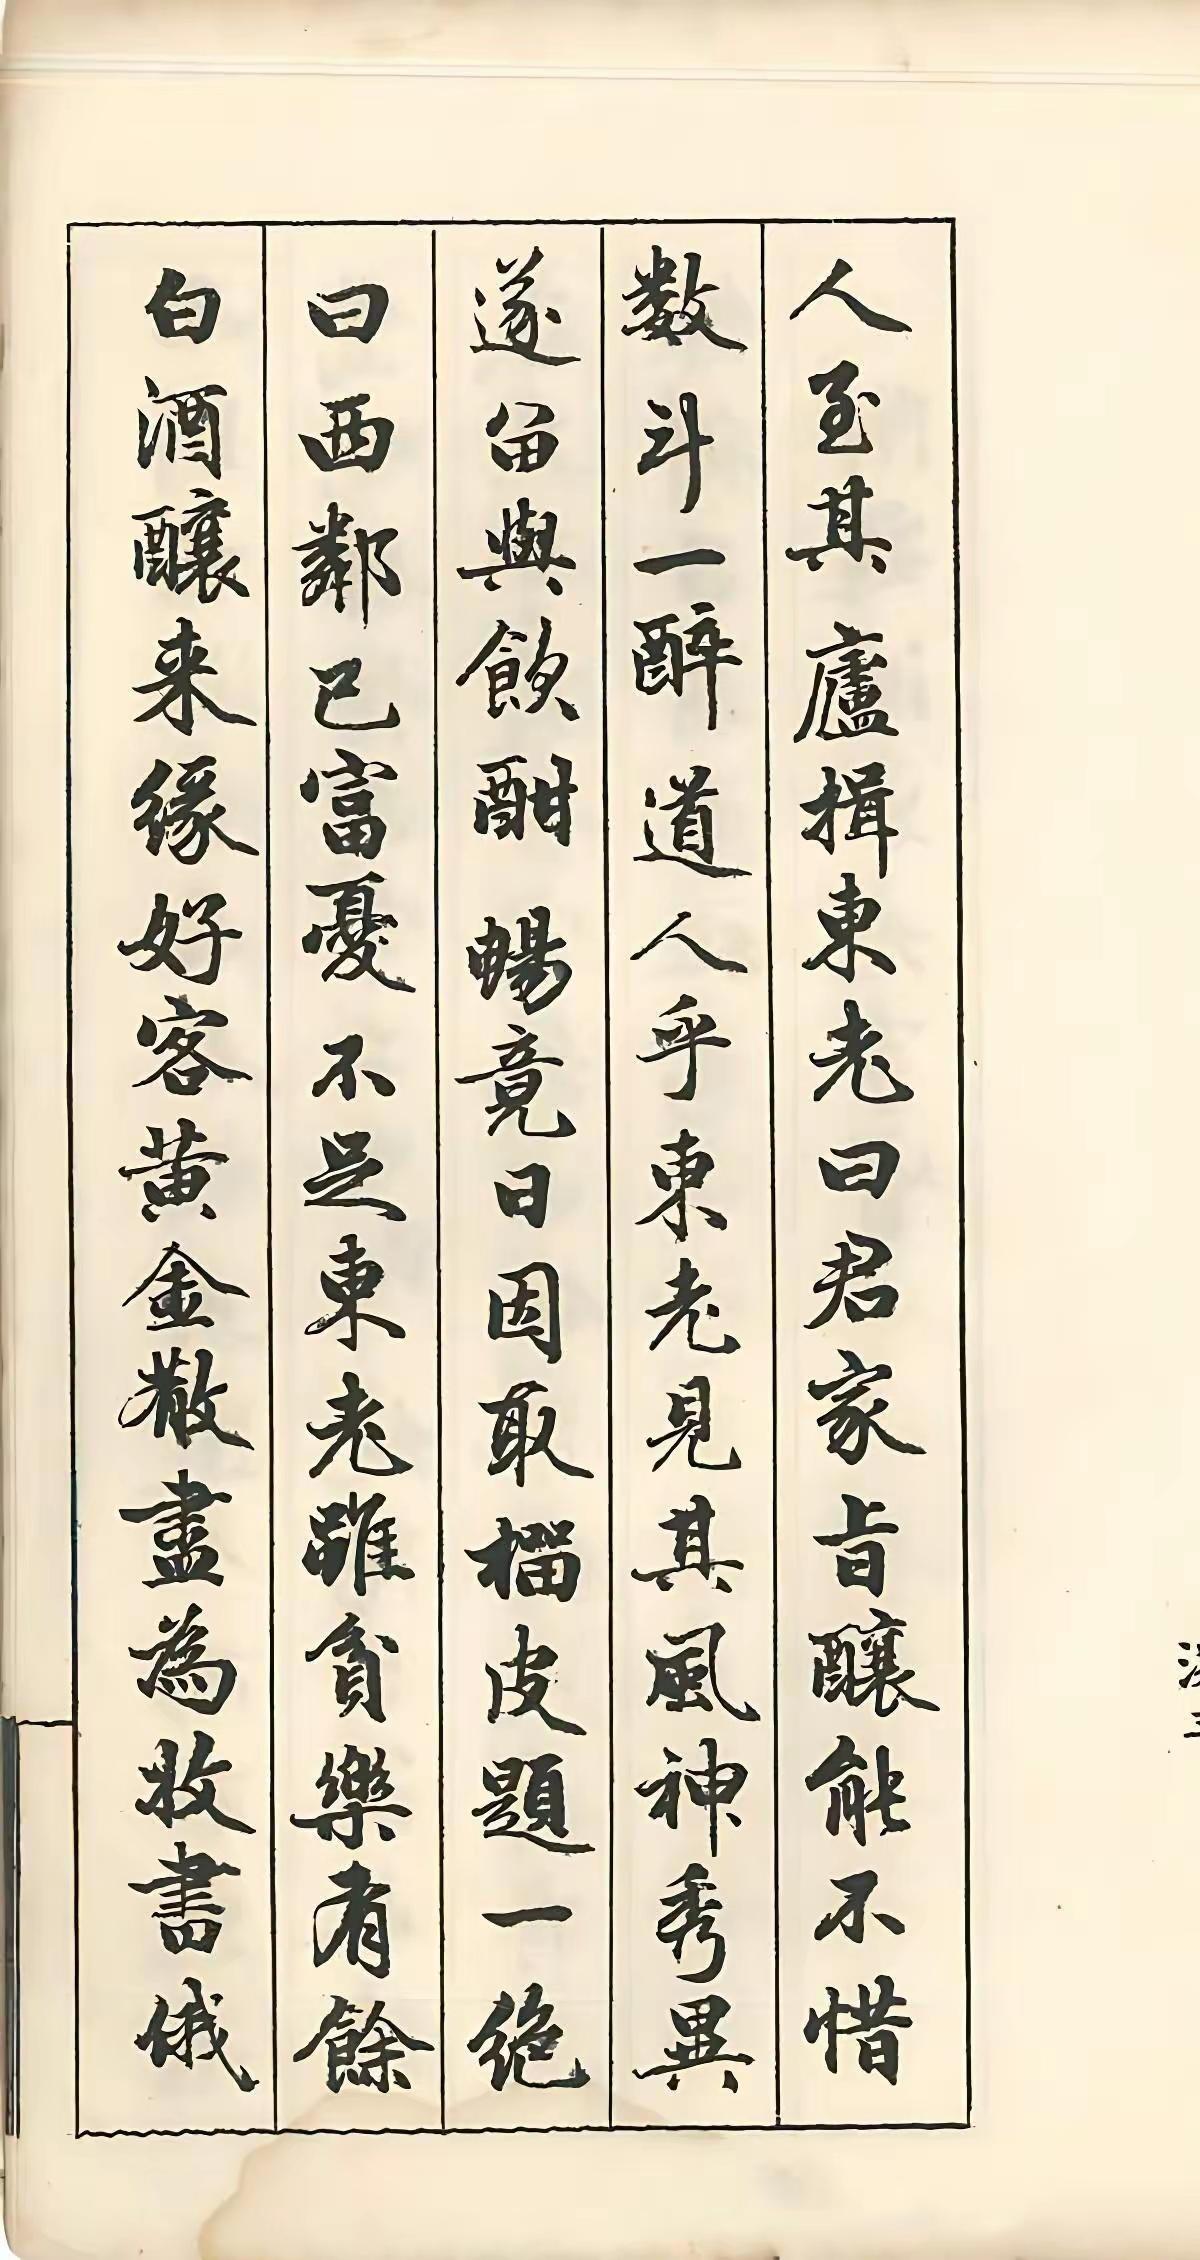 人至其廬揖東老曰君家旨釀能不惜
数斗一醉道人乎東老見其風神秀異
遂留與飲酣暢竟日因取榴皮題一绝
曰西鄰已富憂不足東老雖貧樂有餘
白酒釀来緣好客黄金散盡為收書俄